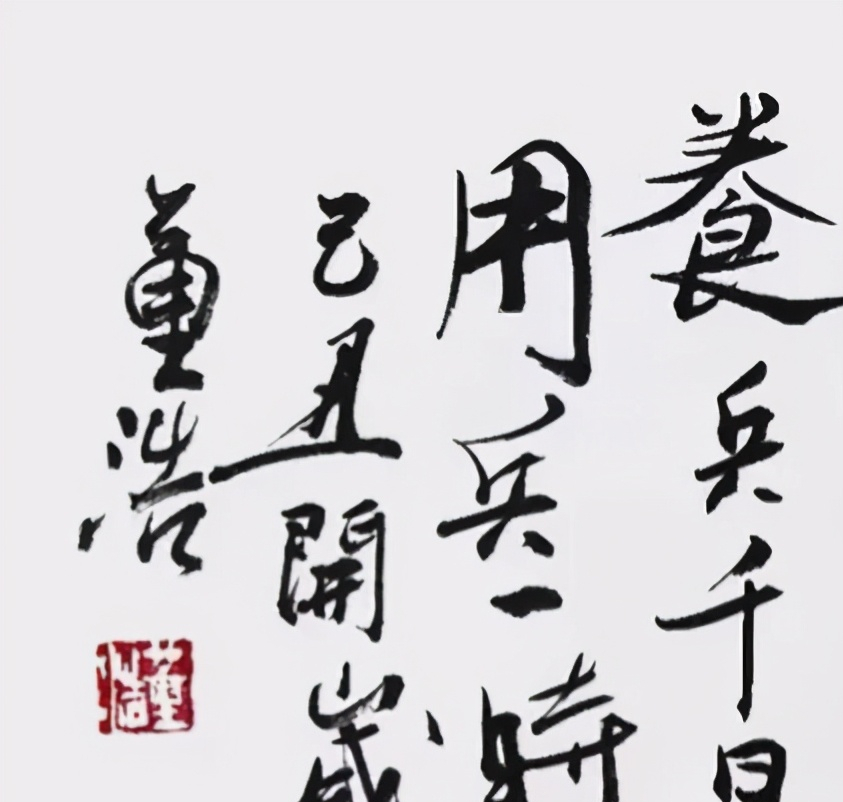 養兵千日
用兵一時
己丑開歲
董浩
董浩